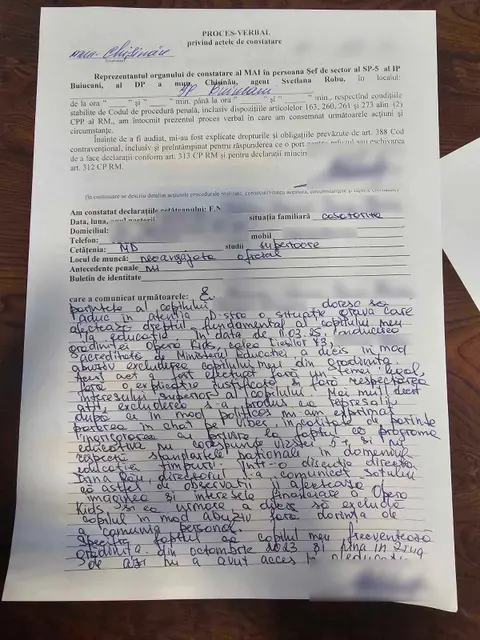 PROCES-VERBAL
privind actele de constatare
mun. Chișinău
Reprezentantul organului de constatare al MAI în persoana Șef de sector al SP-5 al IP
Buiucani, al DP a mun. Chișinău, agent Svetlana Robu, în locul:
IP Buiucani
de la ora " " și " " min. până la ora " " și " " min., respectînd condițiile
stabilite de Codul de procedură penală, inclusiv dispozițiile articolelor 163, 260, 261 și 273 alin. (2)
CPP al RM., am întocmit prezentul proces verbal în care am consemnat următoarele acțiuni și
circumstanțe.
Înainte de a fi audiat, mi-au fost explicate drepturile și obligațiile prevăzute de art. 388 Cod
contravențional, inclusiv și preîntâmpinat pentru răspunderea ce o port pentru refuzul sau eschivarea
de a face declarații conform art. 313 CP RM și pentru declarații mincin
art. 312 CP RM.
Am constatat declarațiile cetățeanului: E.N
Data, luna, anul nașterii situația familiară casatorita
Domiciliul:
Telefon: mobil
Cetățenia: MD studii superioare
Locul de muncă: neangajata oficial
Antecedente penale nu
Buletin de identitate
care a comunicat următoarele: E
parintele al copilului doresc sa
aduc in atentia D-stra o situatie grava care
afecteaza dreptul fundamental al copilului meu
la educatie. In data de 11.03.25 conducerea
gradinitei Opera Kids, Calea Iesilor 43,
acreditate de Ministerul Educatiei a decis in mod
abuziv excluderea copilului meu din gradinita.
Acest act a fost efectuat fara un temei legal
fara o explicatie justificata si fara respectarea
interesului superior al copilului. Mai mult decit
atit, excluderea s-a produs ca represalii
dupa ce in mod politicos mi-am exprimat
parerea in chat pe Viber in calitate de parinte
ingrijorarea cu privire la faptul ca programa
educativa nu corespunde virstei si nu
respecta standartele nationale in domeniul
educatiei timpurii. Intr-o discutie directa
Dana directorul i-a comunicat sotului
ca astfel de observatii ii afecteaza
imaginea si interesele financiare a Opero
Kids si ca urmare a decis sa excluda
copilul in mod abuziv fara dorinta de
a comunica personal.
Specific faptul ca copilul meu frecventeaza
gradinita din octombrie 2023 si pina in ziua
de azi nu a avut acces